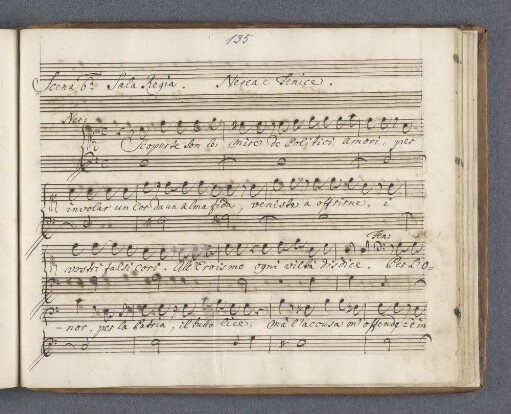 135
Scena 6.ª Sala Regia. Nerea e Fenice.
Ner:
Scoperte son le mire de Politici Amori, per
involar un Cor da un alma fida, venisti a offrirne, i
Fen:
vostri falsi cori. All'Eroismo ogni viltà disdice. Per L'O-
-nor, per la Patria, il tutto lice, ma l'accusa m'offende; è in